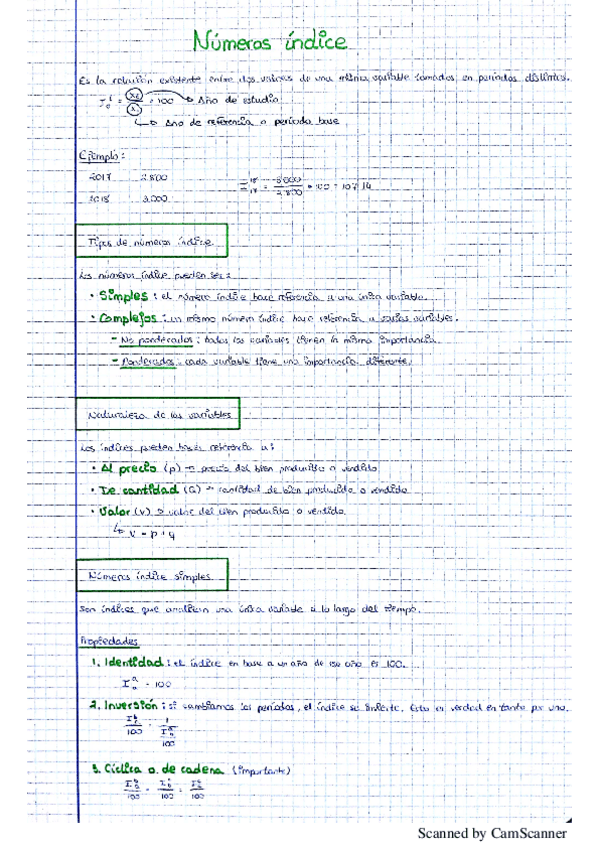 Números índice
Es la relación existente entre dos valores de una misma variable tomados en periodos distintos.
I = × 100 → Año de estudio
→ Año de referencia o periodo base
Ejemplo:
2017 2.800
I = 3.000 / 2.800 × 100 = 107'14
2018 3.000
Tipos de números índice
Los números índice pueden ser:
• Simples: el número índice hace referencia a una única variable.
• Complejos: un mismo número índice hace referencia a varias variables.
- No ponderados: todas las variables tienen la misma importancia.
- Ponderados: cada variable tiene una importancia diferente.
Naturaleza de las variables
Los índices pueden hacer referencia a:
• Al precio (p) → precio del bien producido o vendido
• De cantidad (Q) → cantidad de bien producido o vendido
• Valor (v) → valor del bien producido o vendido.
↳ v = p · q
Números índice simples
Son índices que analizan una única variable a lo largo del tiempo.
Propiedades
1. Identidad: el índice en base a un año de ese año es 100.
I = 100
2. Inversión: si cambiamos los periodos, el índice se invierte. Esto es verdad en tanto por uno.
3. Cíclica o de cadena (importante)
Scanned by CamScanner